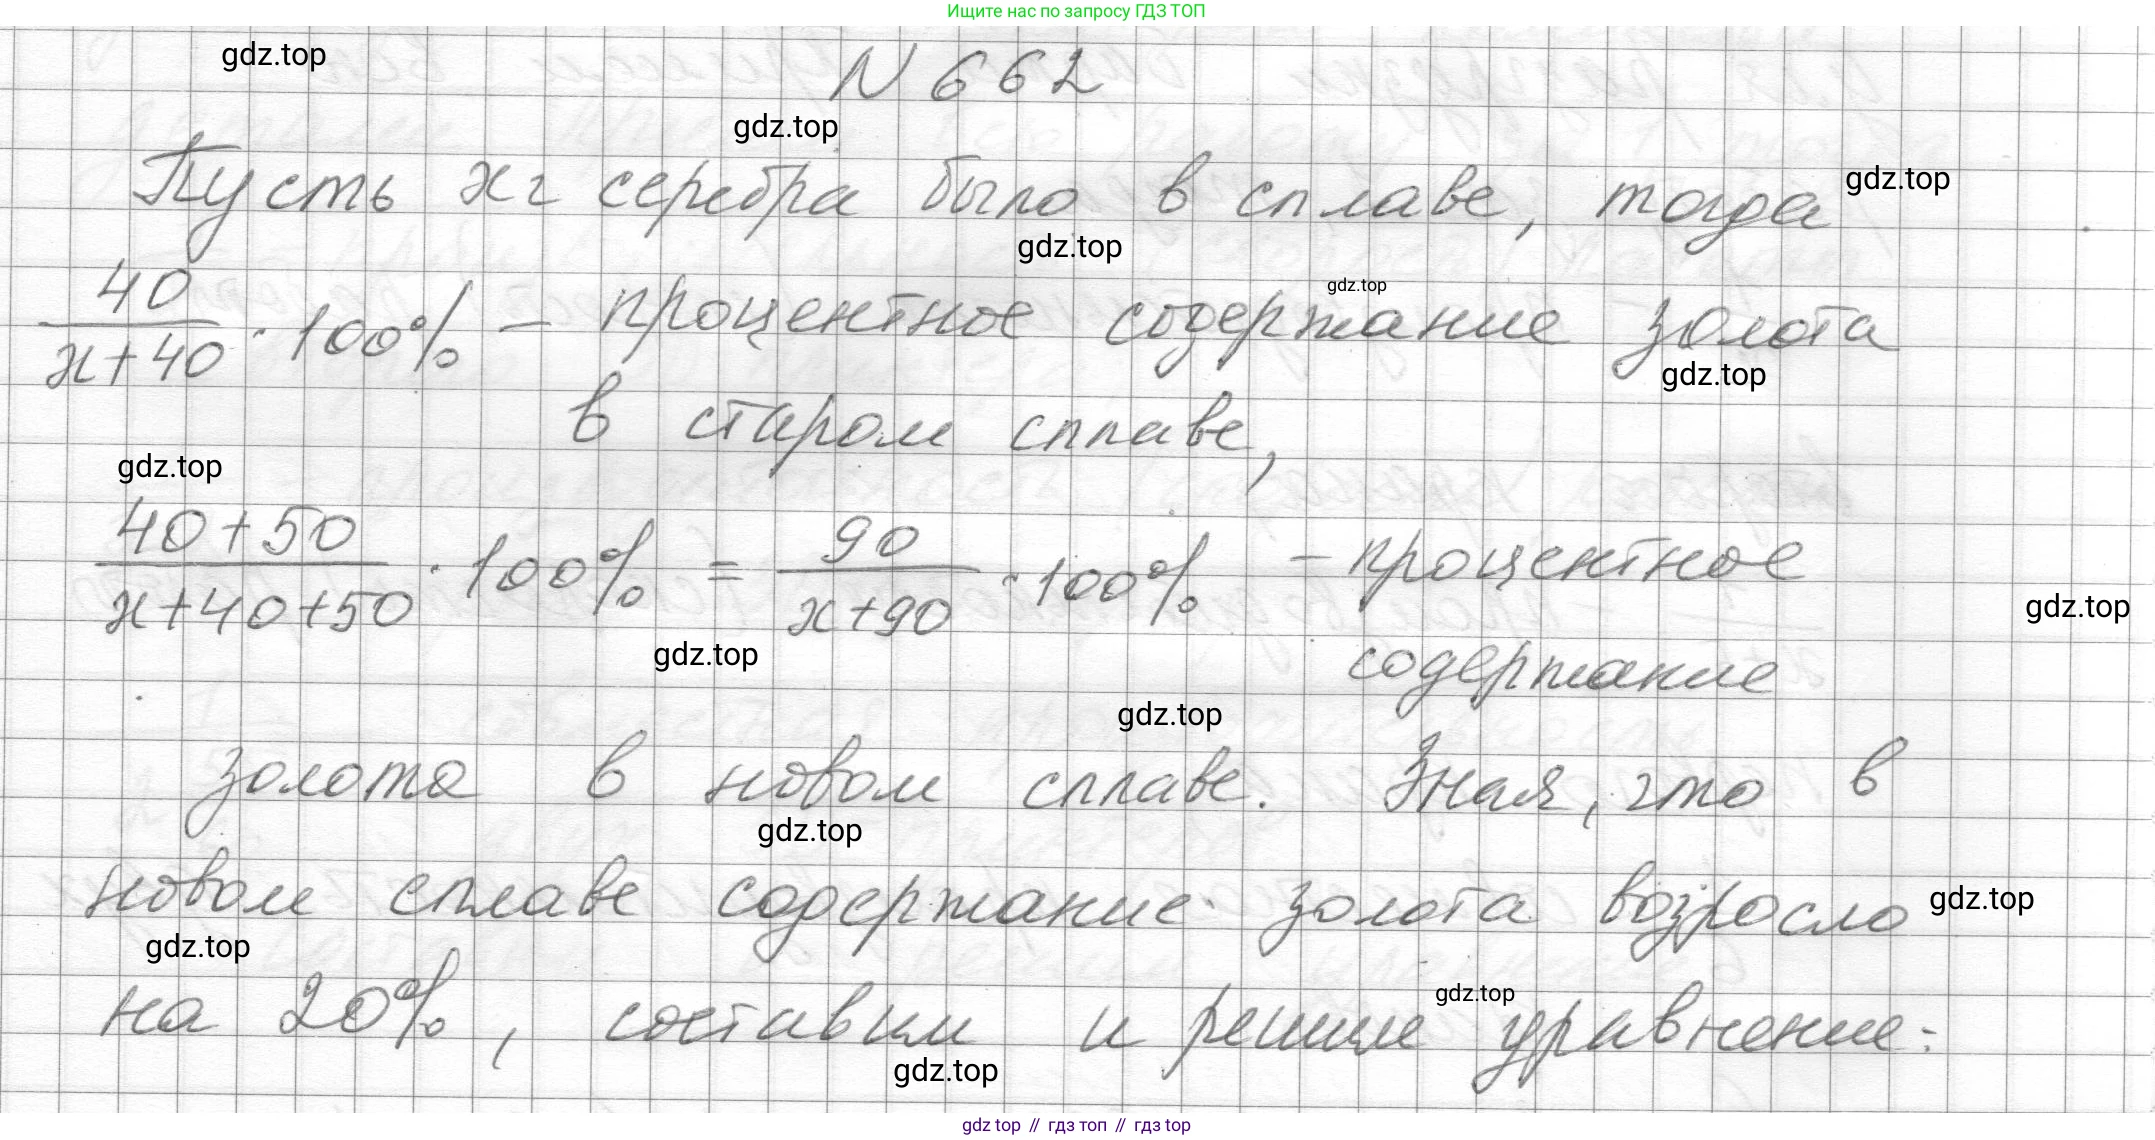 Ищите нас по запросу ГДЗ ТОП
gdz.top
N 662
gdz.top
Пусть x г серебра было в сплаве, тогда
gdz.top
gdz.top
gdz.top
40/(x+40) · 100% – процентное содержание золота
gdz.top
в старом сплаве,
gdz.top
(40+50)/(x+40+50) · 100% = 90/(x+90) · 100% – процентное
gdz.top
gdz.top
содержание
gdz.top
золота в новом сплаве. Зная, что в
gdz.top
новом сплаве содержание золота возросло
gdz.top
gdz.top
на 20%, составим и решим уравнение:
gdz.top
gdz.top
gdz top // гдз топ // гдз top